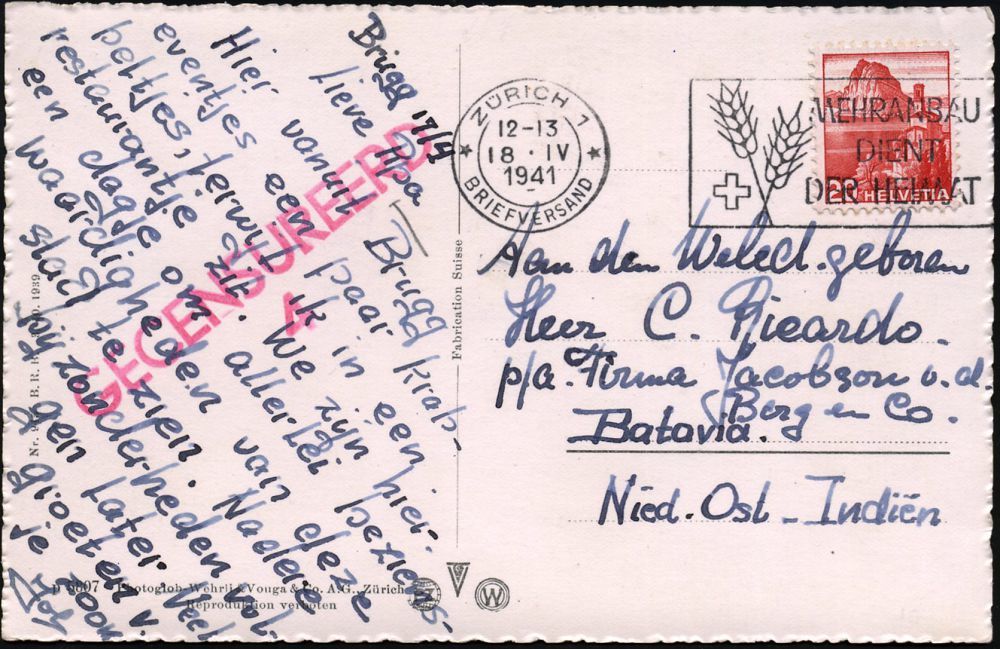 Brugg 17/4
Lieve Apa
Hier vanuit Brugg
eventjes een paar krab-
beltjes, terwijl ik in een
restaurantje zit. We zijn hier
een dagje om allerlei beziens-
waardigheden van deze
stad te zien. Nadere
bijzonderheden vol-
gen later. Veel
groeten v.
je zoon
GECENSUREERD
4
Nr. B. R. B. 1939
Photoglob-Wehrli & Vouga & Co. A.G., Zürich
Reproduktion verboten
Fabrication Suisse
W
ZÜRICH 1
12-13
18·IV
1941
BRIEFVERSAND
MEHRANBAU
DIENT
DER HEIMAT
20 HELVETIA
Aan den Weled. geboren
Heer C. Ricardo.
p/a. Firma Jacobson v. d.
Berg en Co.
Batavia.
Nied. Ost - Indiën